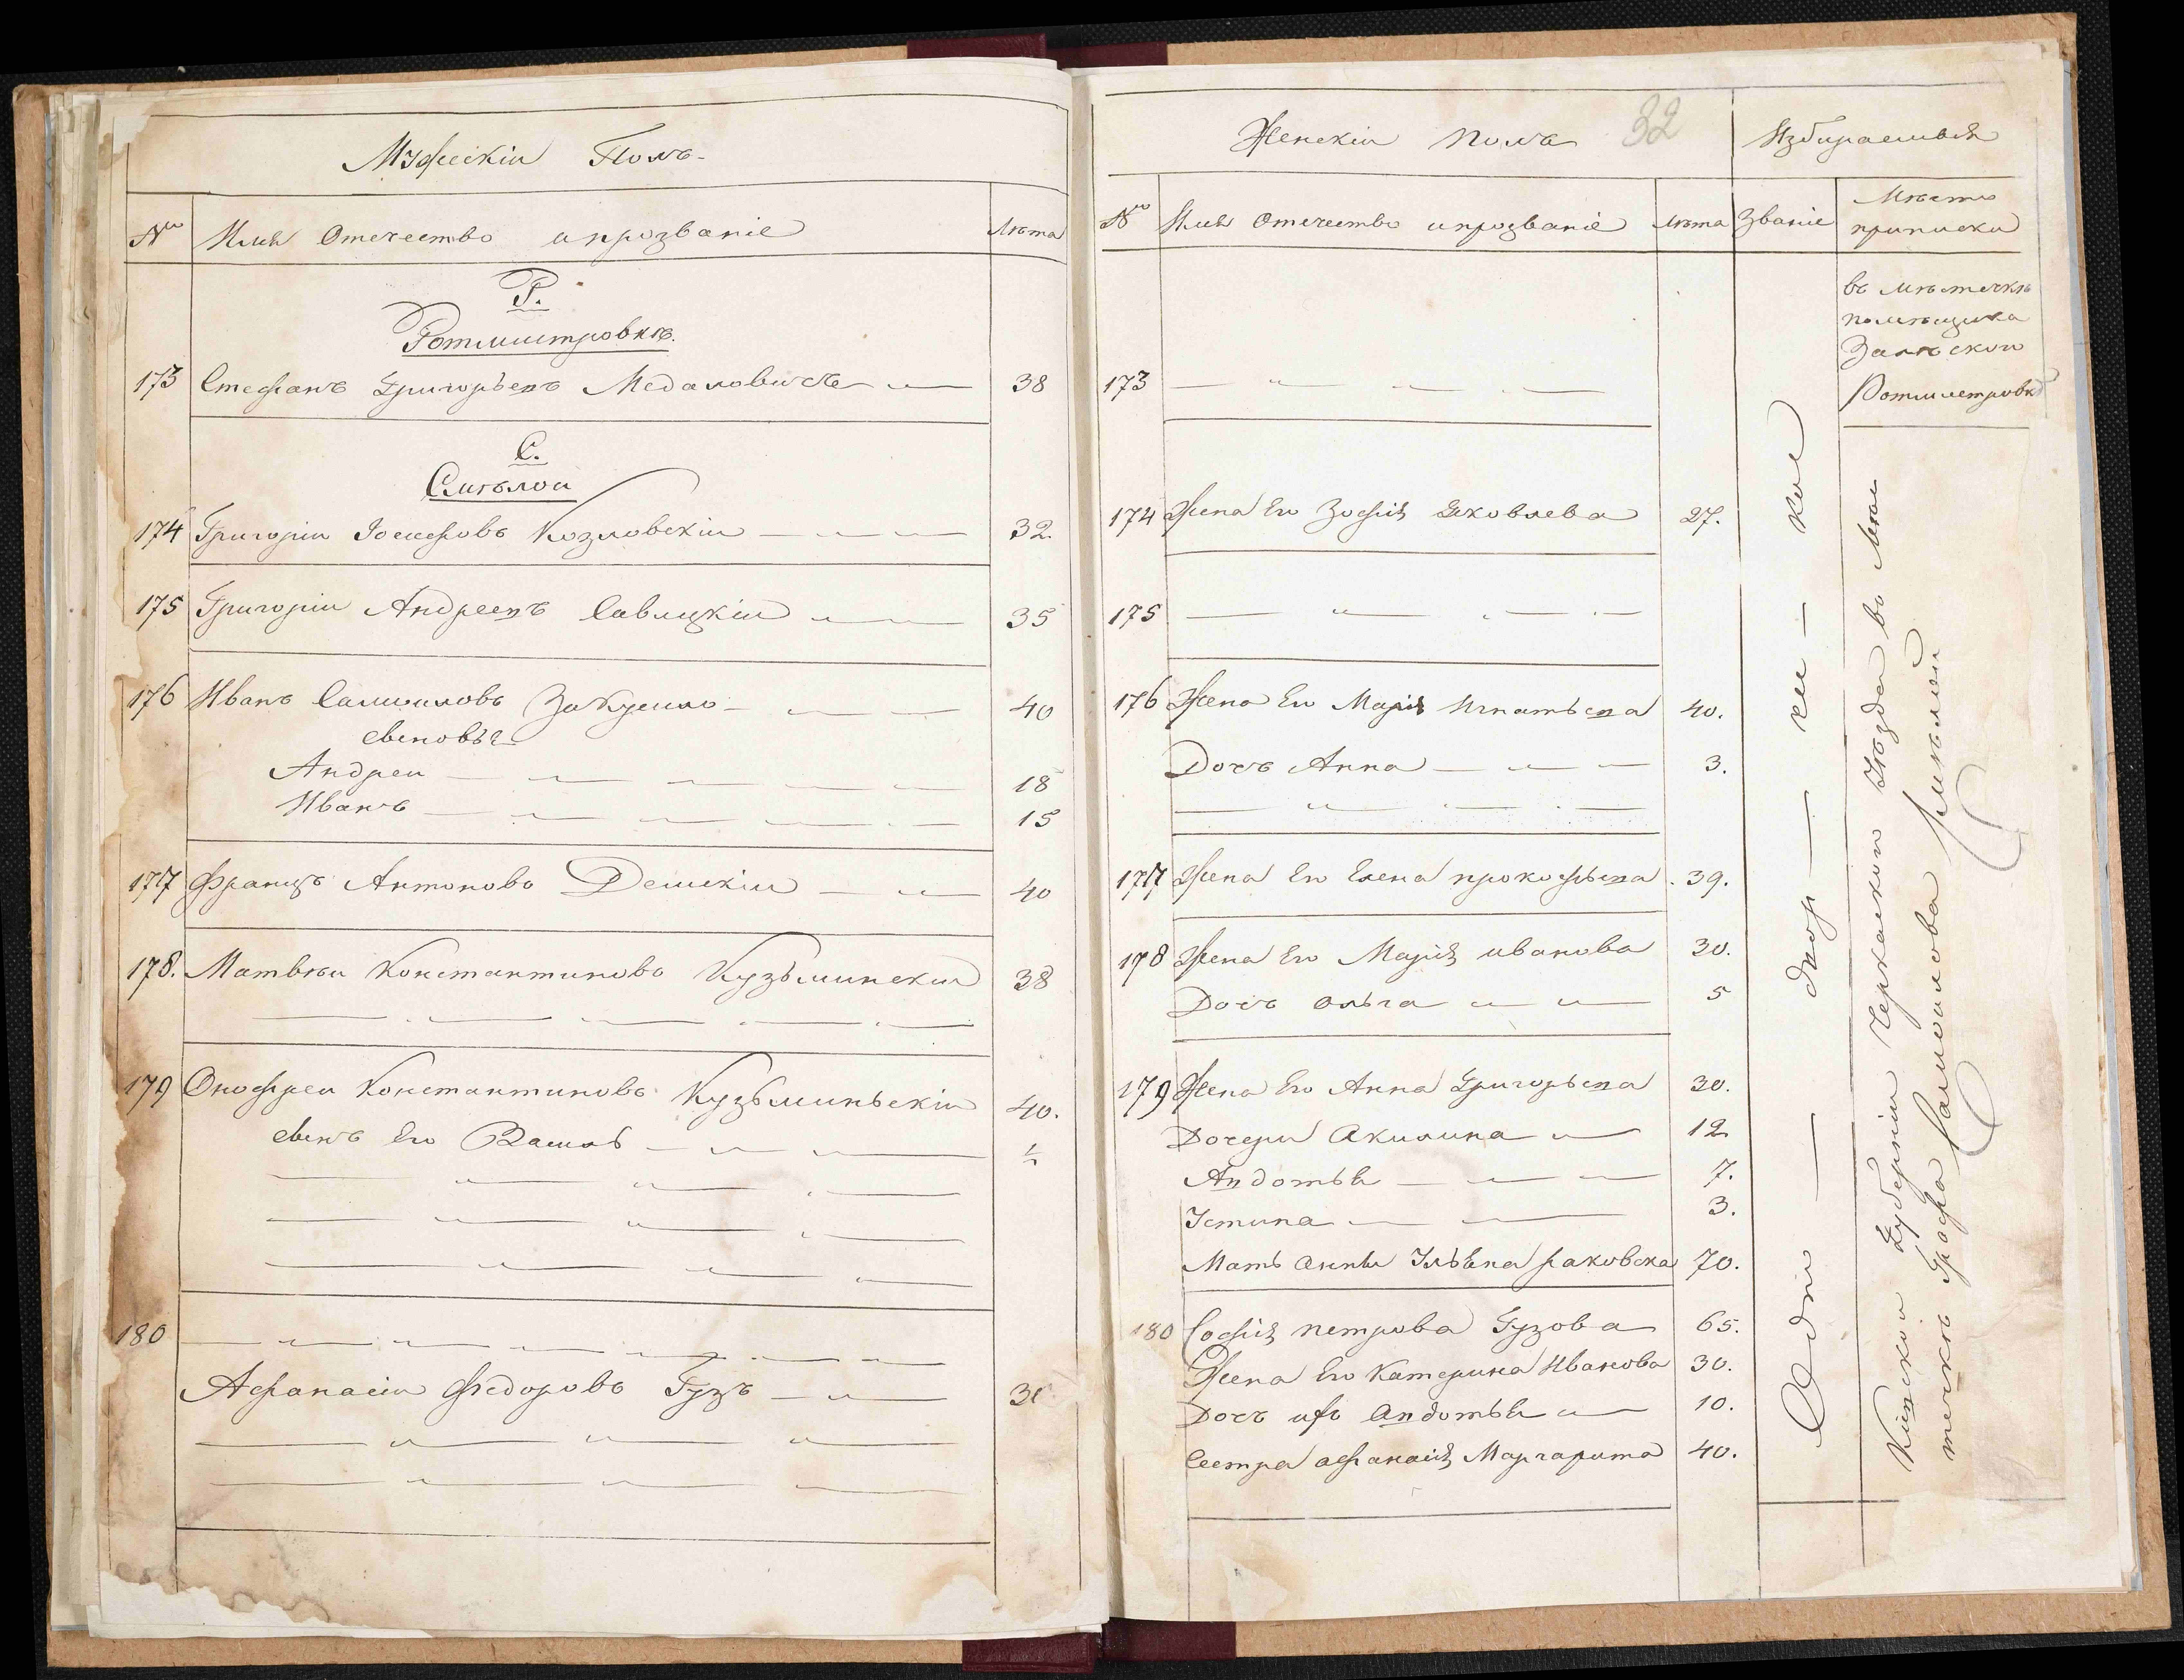 Мужескіи Полъ
№ Имя Отечество ипрозваніе Лѣта
Р.
Ротмистровкѣ.
173 Стефанъ Григорьевъ Медаловичъ 38
С.
Смѣлой
174 Григоріи Іосифовъ Козловскіи 32.
175 Григоріи Андреевъ Савицкіи 35
176 Иванъ Самоиловъ 40
сыновья
Андреи 18
Иванъ 15
177 Францъ Антоновъ 40
178. Матвѣи Константиновъ Кузьминскіи 38
179 Онофреи Константиновъ Кузьминьскіи 40.
сынъ Его
180
Афанасіи Федоровъ Гузъ
Женскіи Полъ 32 Избираемыя
№ Имя Отечество ипрозваніе Лѣта Званіе Мѣсто
приписки
въ мѣстечкѣ
помѣщика
Ротмистровкѣ
173
174 Жена Его Зофія Яковлева 27.
175
176 Жена Его Марія Игнатьева 40.
Дочь Анна 3.
177 Жена Его Елена прокофьева 39.
178 Жена Его Марія иванова 30.
Дочь Ольга 5
179 Жена Его Анна Григорьева 30.
Дочери Акилина 12
Авдотья 7.
Устина 3.
Мать Анны раковска 70.
180 Софія петрова Гузова 65.
Жена Его Катерина Иванова 30.
Дочь ихъ Авдотья 10.
Сестра афанасія Маргарита 40.
Одно двор ки
Кіевской Губерніи Черкаскои Уѣзда во
течкѣ Графа Самоилова